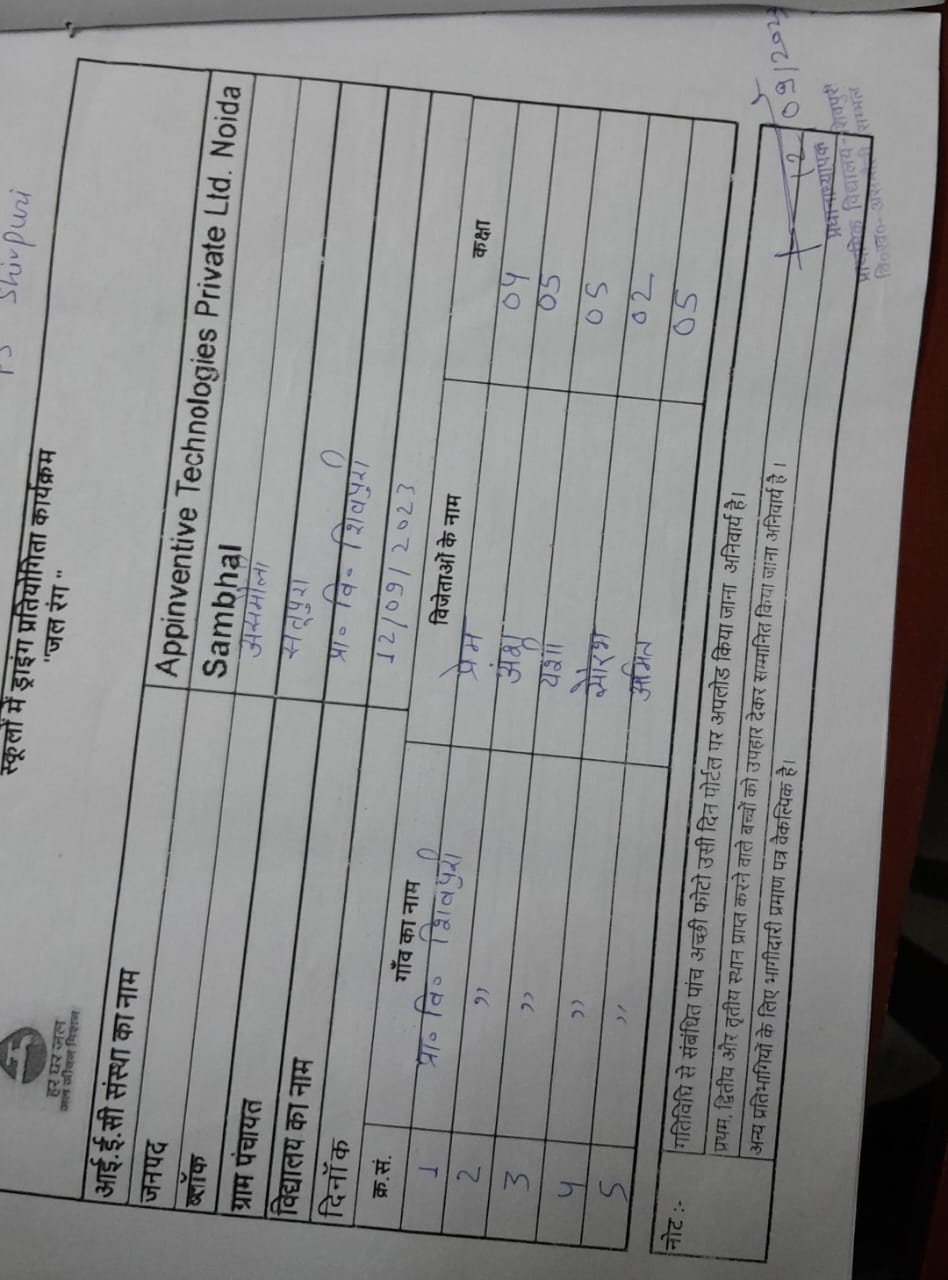 PS Shivpuri
हर घर जल
जल जीवन मिशन
स्कूलों में ड्राइंग प्रतियोगिता कार्यक्रम
"जल रंग"
आई.ई.सी संस्था का नाम Appinventive Technologies Private Ltd. Noida
जनपद Sambhal
ब्लॉक असमोली
ग्राम पंचायत सतूपुरा
विद्यालय का नाम प्रा० वि० शिवपुरी
दिनाँक 12/09/2023
क्र.सं. गाँव का नाम विजेताओं के नाम कक्षा
1 प्रा० वि० शिवपुरी प्रेम 04
2 " अंशु 05
3 " यंश 05
4 " सौरभ 02
5 " अमित 05
नोट :- गतिविधि से संबंधित पांच अच्छी फोटो उसी दिन पोर्टल पर अपलोड किया जाना अनिवार्य है।
प्रथम, द्वितीय और तृतीय स्थान प्राप्त करने वाले बच्चों को उपहार देकर सम्मानित किया जाना अनिवार्य है।
अन्य प्रतिभागियों के लिए भागीदारी प्रमाण पत्र वैकल्पिक है।
12/09/2023
प्रधानाध्यापक
प्राथमिक विद्यालय-शिवपुरी
वि०ख०-असमोली सम्भल